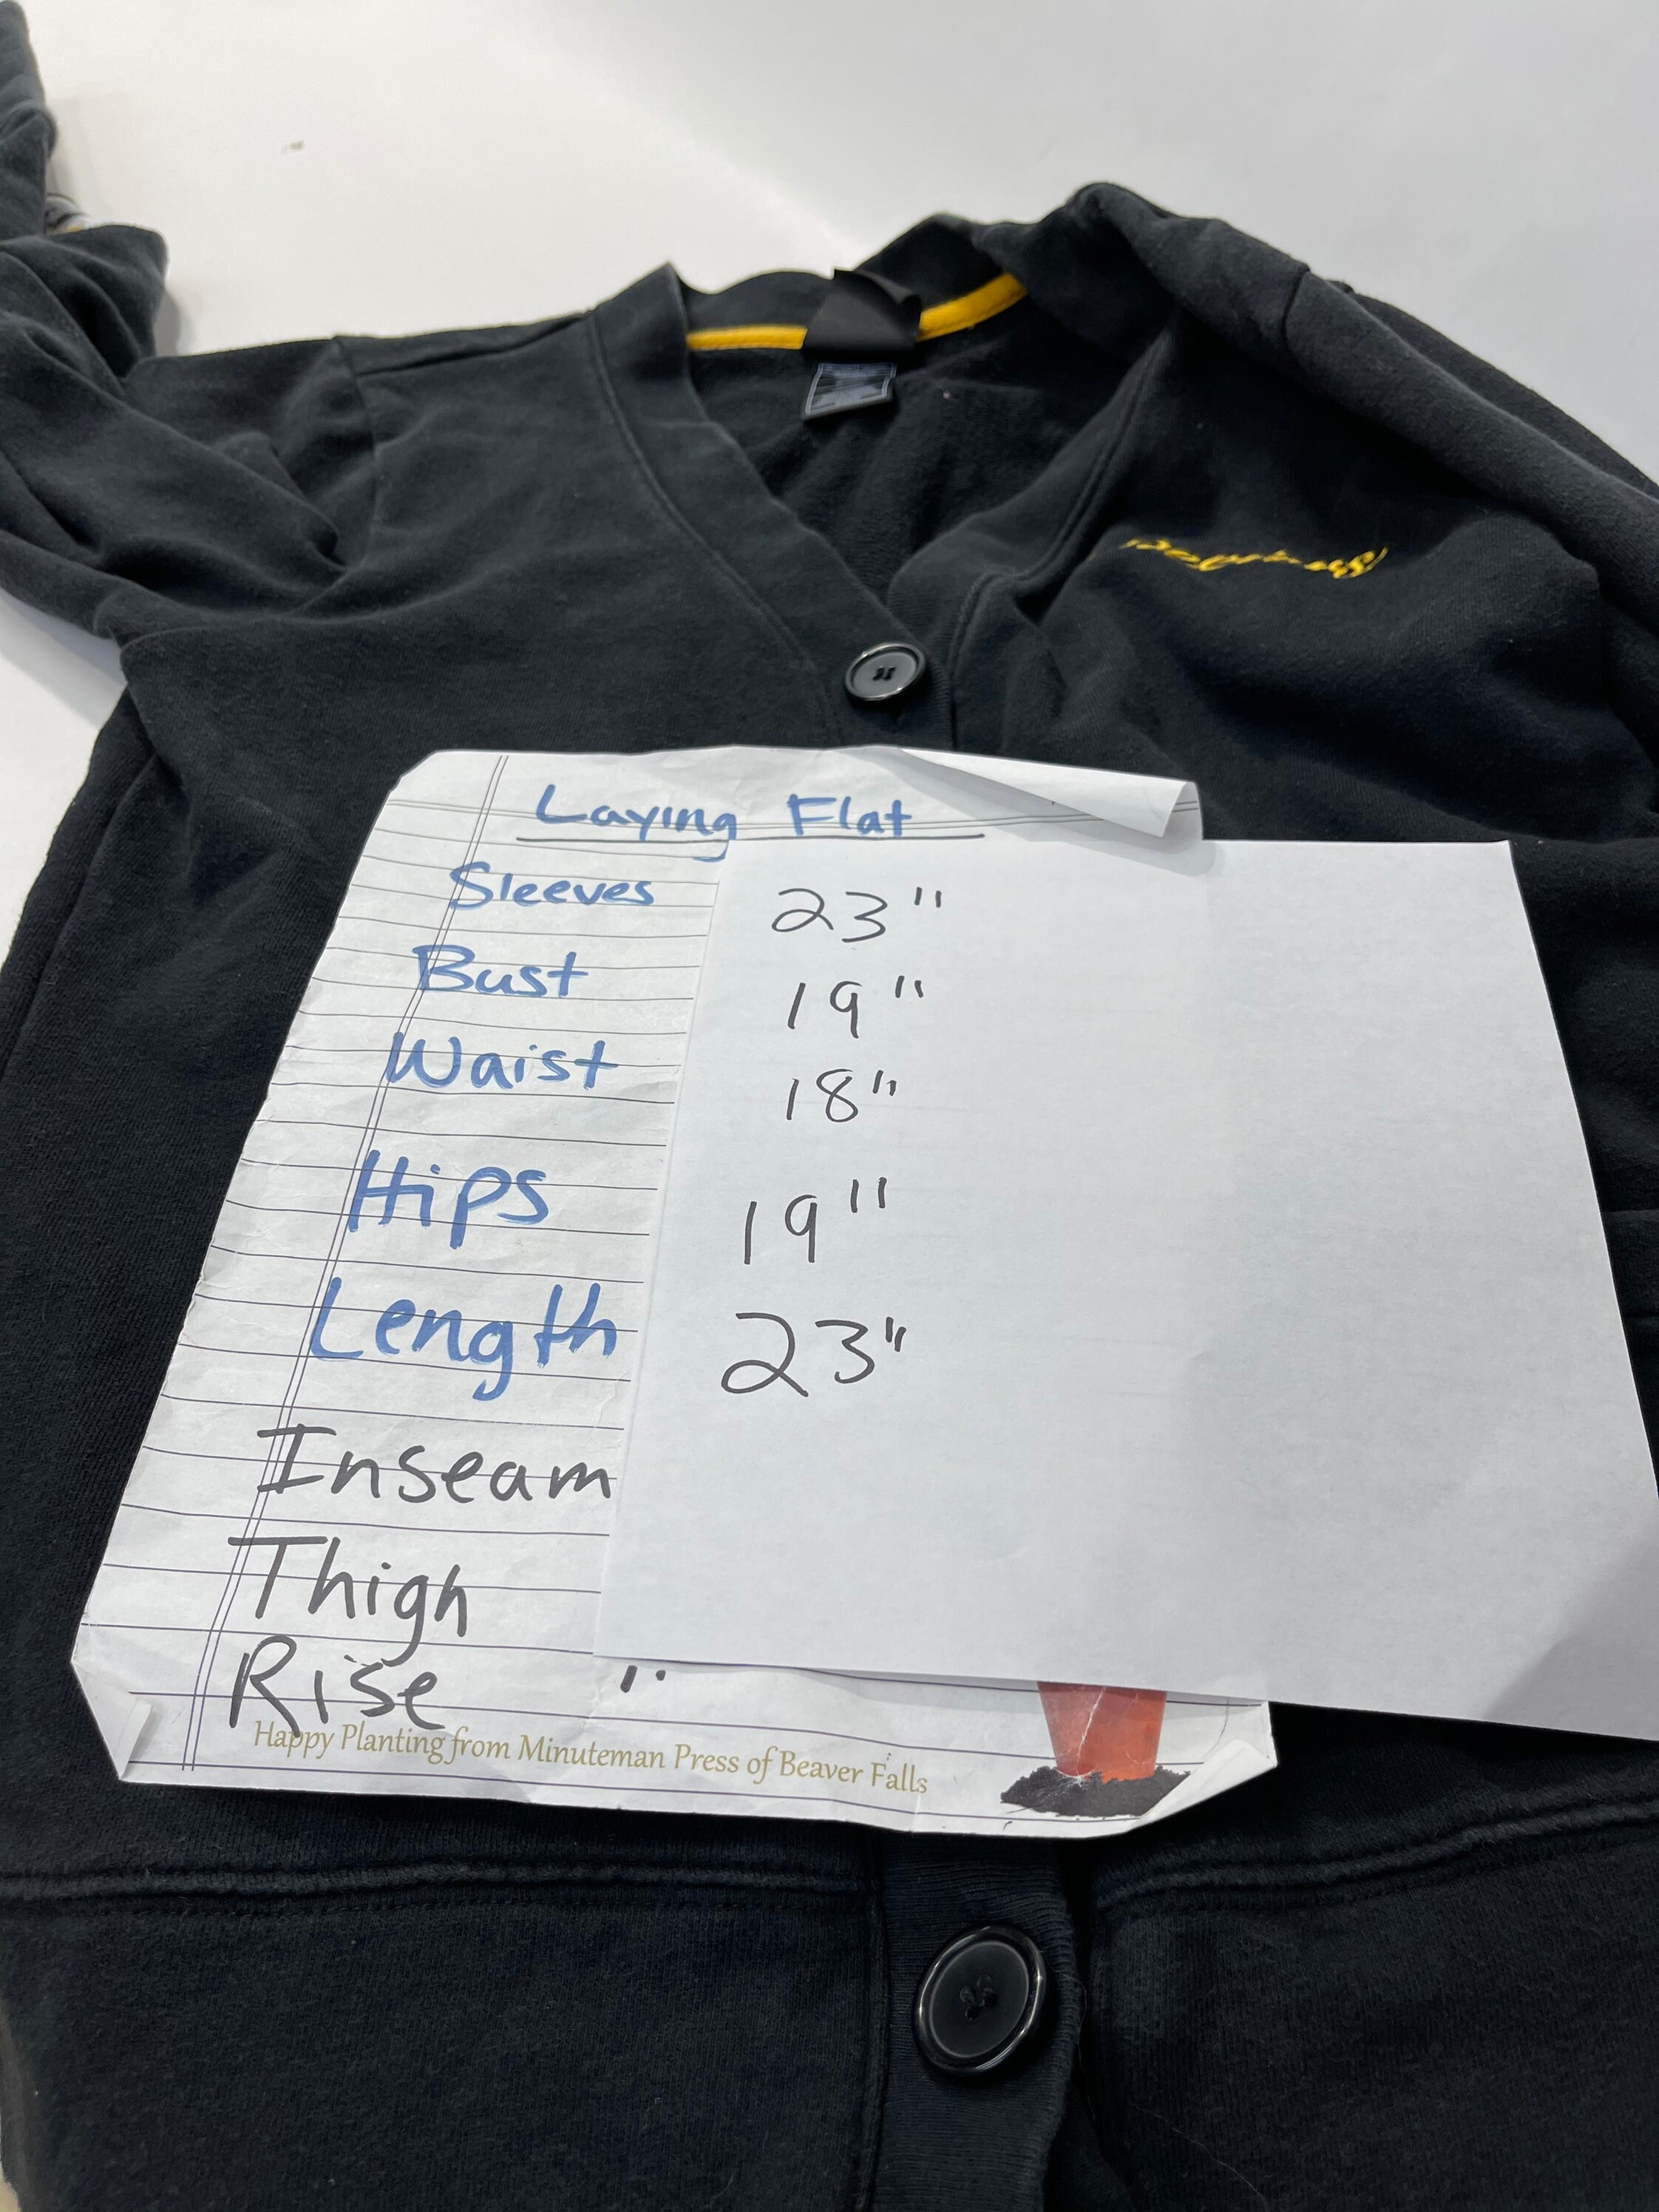 Laying Flat
Sleeves 23"
Bust 19"
Waist 18"
Hips 19"
Length 23"
Inseam
Thigh
Rise "
Happy Planting from Minuteman Press of Beaver Falls